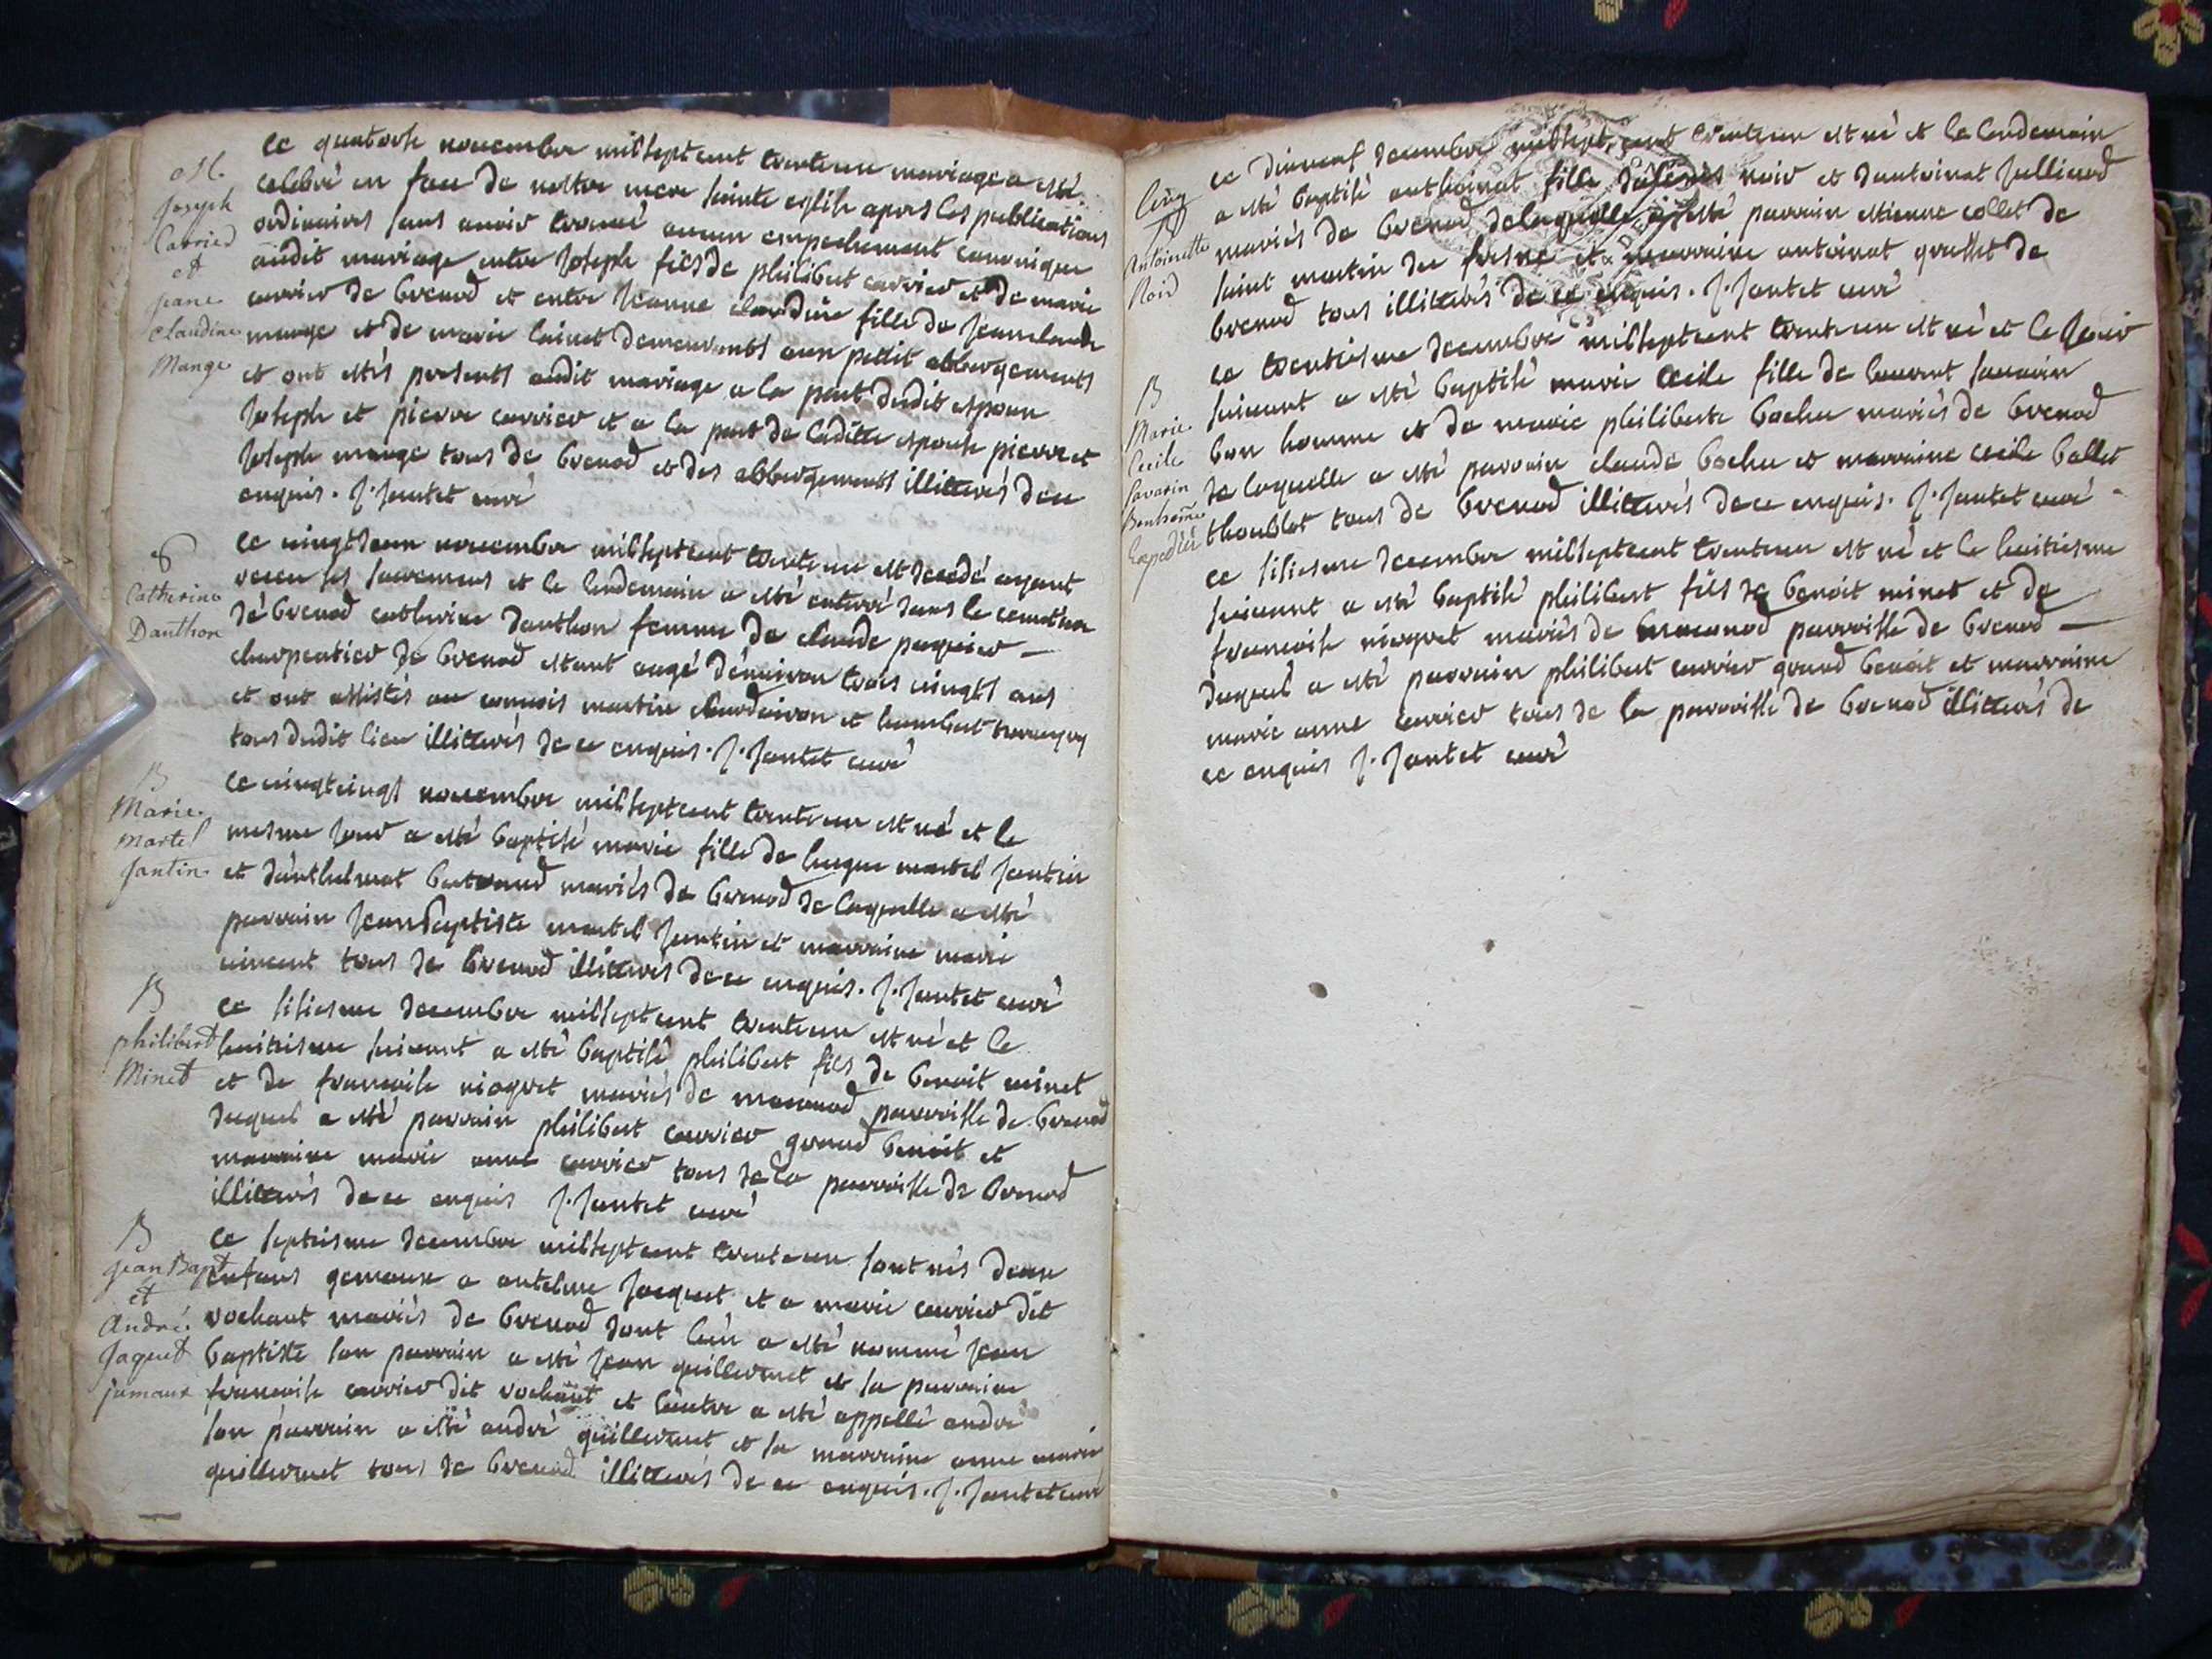 M.
Joseph
Carried
et
jeane
claudine
Mange
le quatorse novembre milseptcent trenteun mariage a esté
celebré en face de nostre mere sainte eglise apres les publications
ordinaires sans avoir trouvé aucun empechement canonique
audit mariage entre Joseph fils de philibert carrier et de marie
carrier de brenod et entre Jeanne claudine fille de Jeanclaude
mange et de marie demeurants aux pettit abbergements
et ont estés presents audit mariage a la part dudit espoux
Joseph et pierre carrier et a la part de laditte espouse pierre et
Joseph mange tous de brenod et des abbergements illitterés de ce
enquis. J. Jantet curé
Catherine
Danthon
le vingtdeux novembre milseptcent trenteun est decedé ayant
receu ses sacremens et le lendemain a esté enterré dans le cemettier
de brenod catherine danthon femme de claude paquier
charpentier de brenod estant aagé d'environ trois vingts ans
et ont assistés au convois martin et humbert
tous dudit lieu illitterés de ce enquis. J. Jantet curé
B
Marie
martel
Jantin
le vingtcinqs novembre milseptcent trenteun est né et le
mesme jour a esté baptisé marie fille de luque martel Jantin
et d'anthelmat mariés de brenod de laquelle a esté
parrain Jeanbaptiste martel Jantin et marraine marie
vincent tous de brenod illitterés de ce enquis. J. Jantet curé
B
philibert
Minet
le sisiesme decembre milseptcent trenteun est né et le
huitiesme suivant a esté baptisé philibert fils de benoit minet
et de francoise niogret mariés de maconod parroisse de brenod
duquel a esté parrain philibert carrier grand benoit et
marraine marie anne carrier tous de la parroisse de brenod
illitterés de ce enquis J. Jantet curé
B
jean Bapt
et
André
Jaquet
jumaux
le septiesme decembre milseptcent trenteun sont nés deux
enfans gemaux a antelme Jacquet et a marie carrier dit
rochant mariés de brenod dont l'un a esté nommé jean
baptiste son parrain a esté jean guillermet et sa parraine
francoise carrier dit rochant et l'autre a esté appellé andre
son parrain a esté andré guillermet et sa marraine anne marie
guillermet tous de brenod illitterés de ce enquis. J. Jantet curé
B
Antoinette
Roid
le dixneuf decembre milsept cent trenteun est né et le lendemain
a esté baptisé anthoinat fille roid et d'antoinat Jullierod
mariés de brenod de laquelle a esté parrain estienne collet de
saint martin du fresne et marraine antoinat de
brenod tous illitterés de ce enquis. J. Jantet curé
B
Marie
Cecile
Savarin
Bonhome
Expedié
le trentiesme decembre milseptcent trenteun est né et le jour
suivant a esté baptisé marie cecile fille de laurent savarin
bon homme et de marie philiberte bochu mariés de brenod
de laquelle a esté parrain claude bochu et marraine cecile ballet
thoublot tous de brenod illitterés de ce enquis. J. Jantet curé
le sisiesme decembre milseptcent trenteun est né et le huitiesme
suivant a esté baptisé philibert fils de benoit minet et de
francoise niogret mariés de maconod parroisse de brenod
duquel a esté parrain philibert carrier grand benoit et marraine
marie anne carrier tous de la parroisse de brenod illitterés de
ce enquis J. Jantet curé